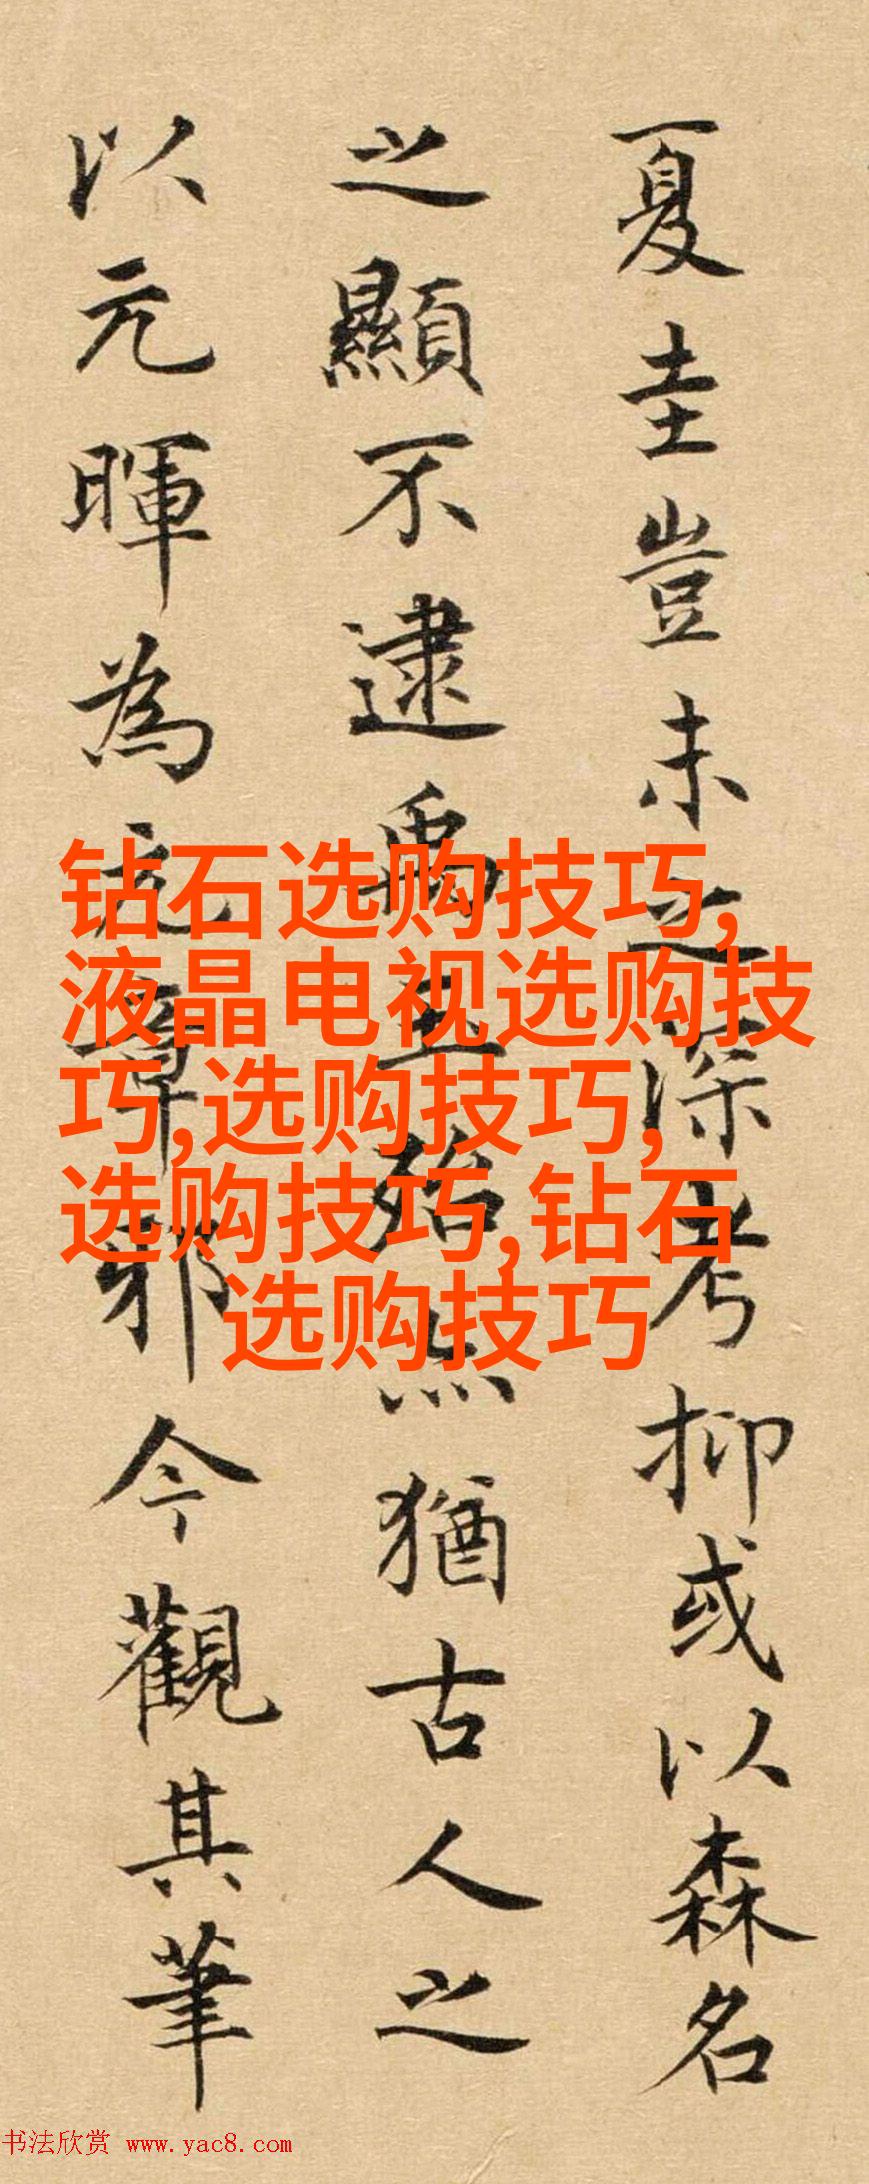 夏圭豈未之深考抑或以森名
之顯不逮禹玉殆点猶古人之
以元暉為元章邪今觀其筆
钻石选购技巧,
液晶电视选购技
巧,选购技巧,
选购技巧,钻石
选购技巧
书法欣赏 www.yac8.com